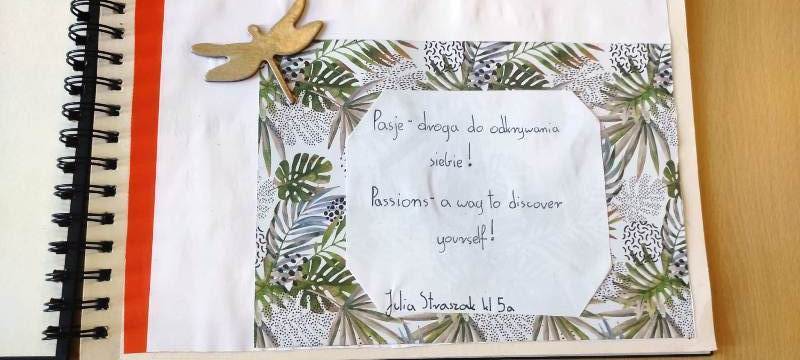 Pasje - droga do odkrywania
siebie!
Passions - a way to discover
yourself!
Julia Straszak kl 5a